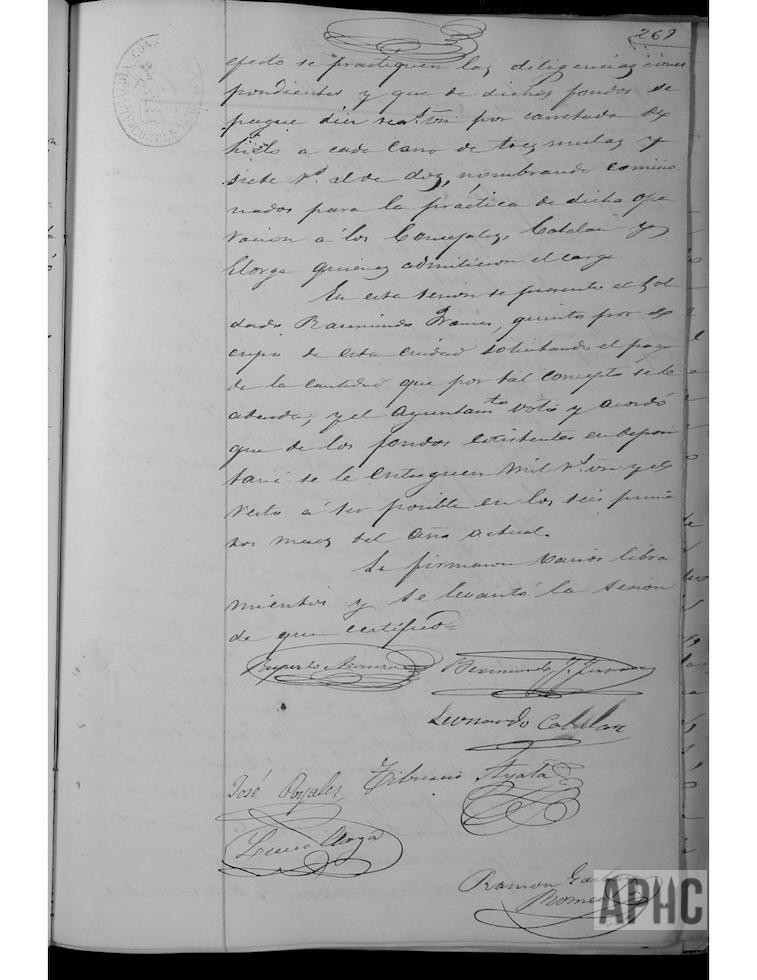 269
efecto se practiquen las diligencias corres
pondientes y que de dichos fondos se
pague diez rea.s von por carretada de
hielo a cada carro de tres mulas y
siete r.s al de dos, nombrando comisio
nados para la práctica de dicha ope
racion á los Concejales, Catalan y
Elorga quienes admitieron el cargo
En esta sesion se presento el Sol
dado Raimundo Frances, quinto por el
cupo de esta ciudad solicitando el pago
de la cantidad que por tal concepto se le
adeuda; y el Ayuntam.to votó y acordó
que de los fondos existentes en deposi
taria se le entreguen mil r.s von y el
resto á ser posible en los seis prime
ros meses del año actual.
Se firmaron varios libra
mientos y se levantó la sesion
de que certifico=
Ruperto
Leonardo Catalan
José Tiburcio Ayala
Ramon
Romeo
APHC